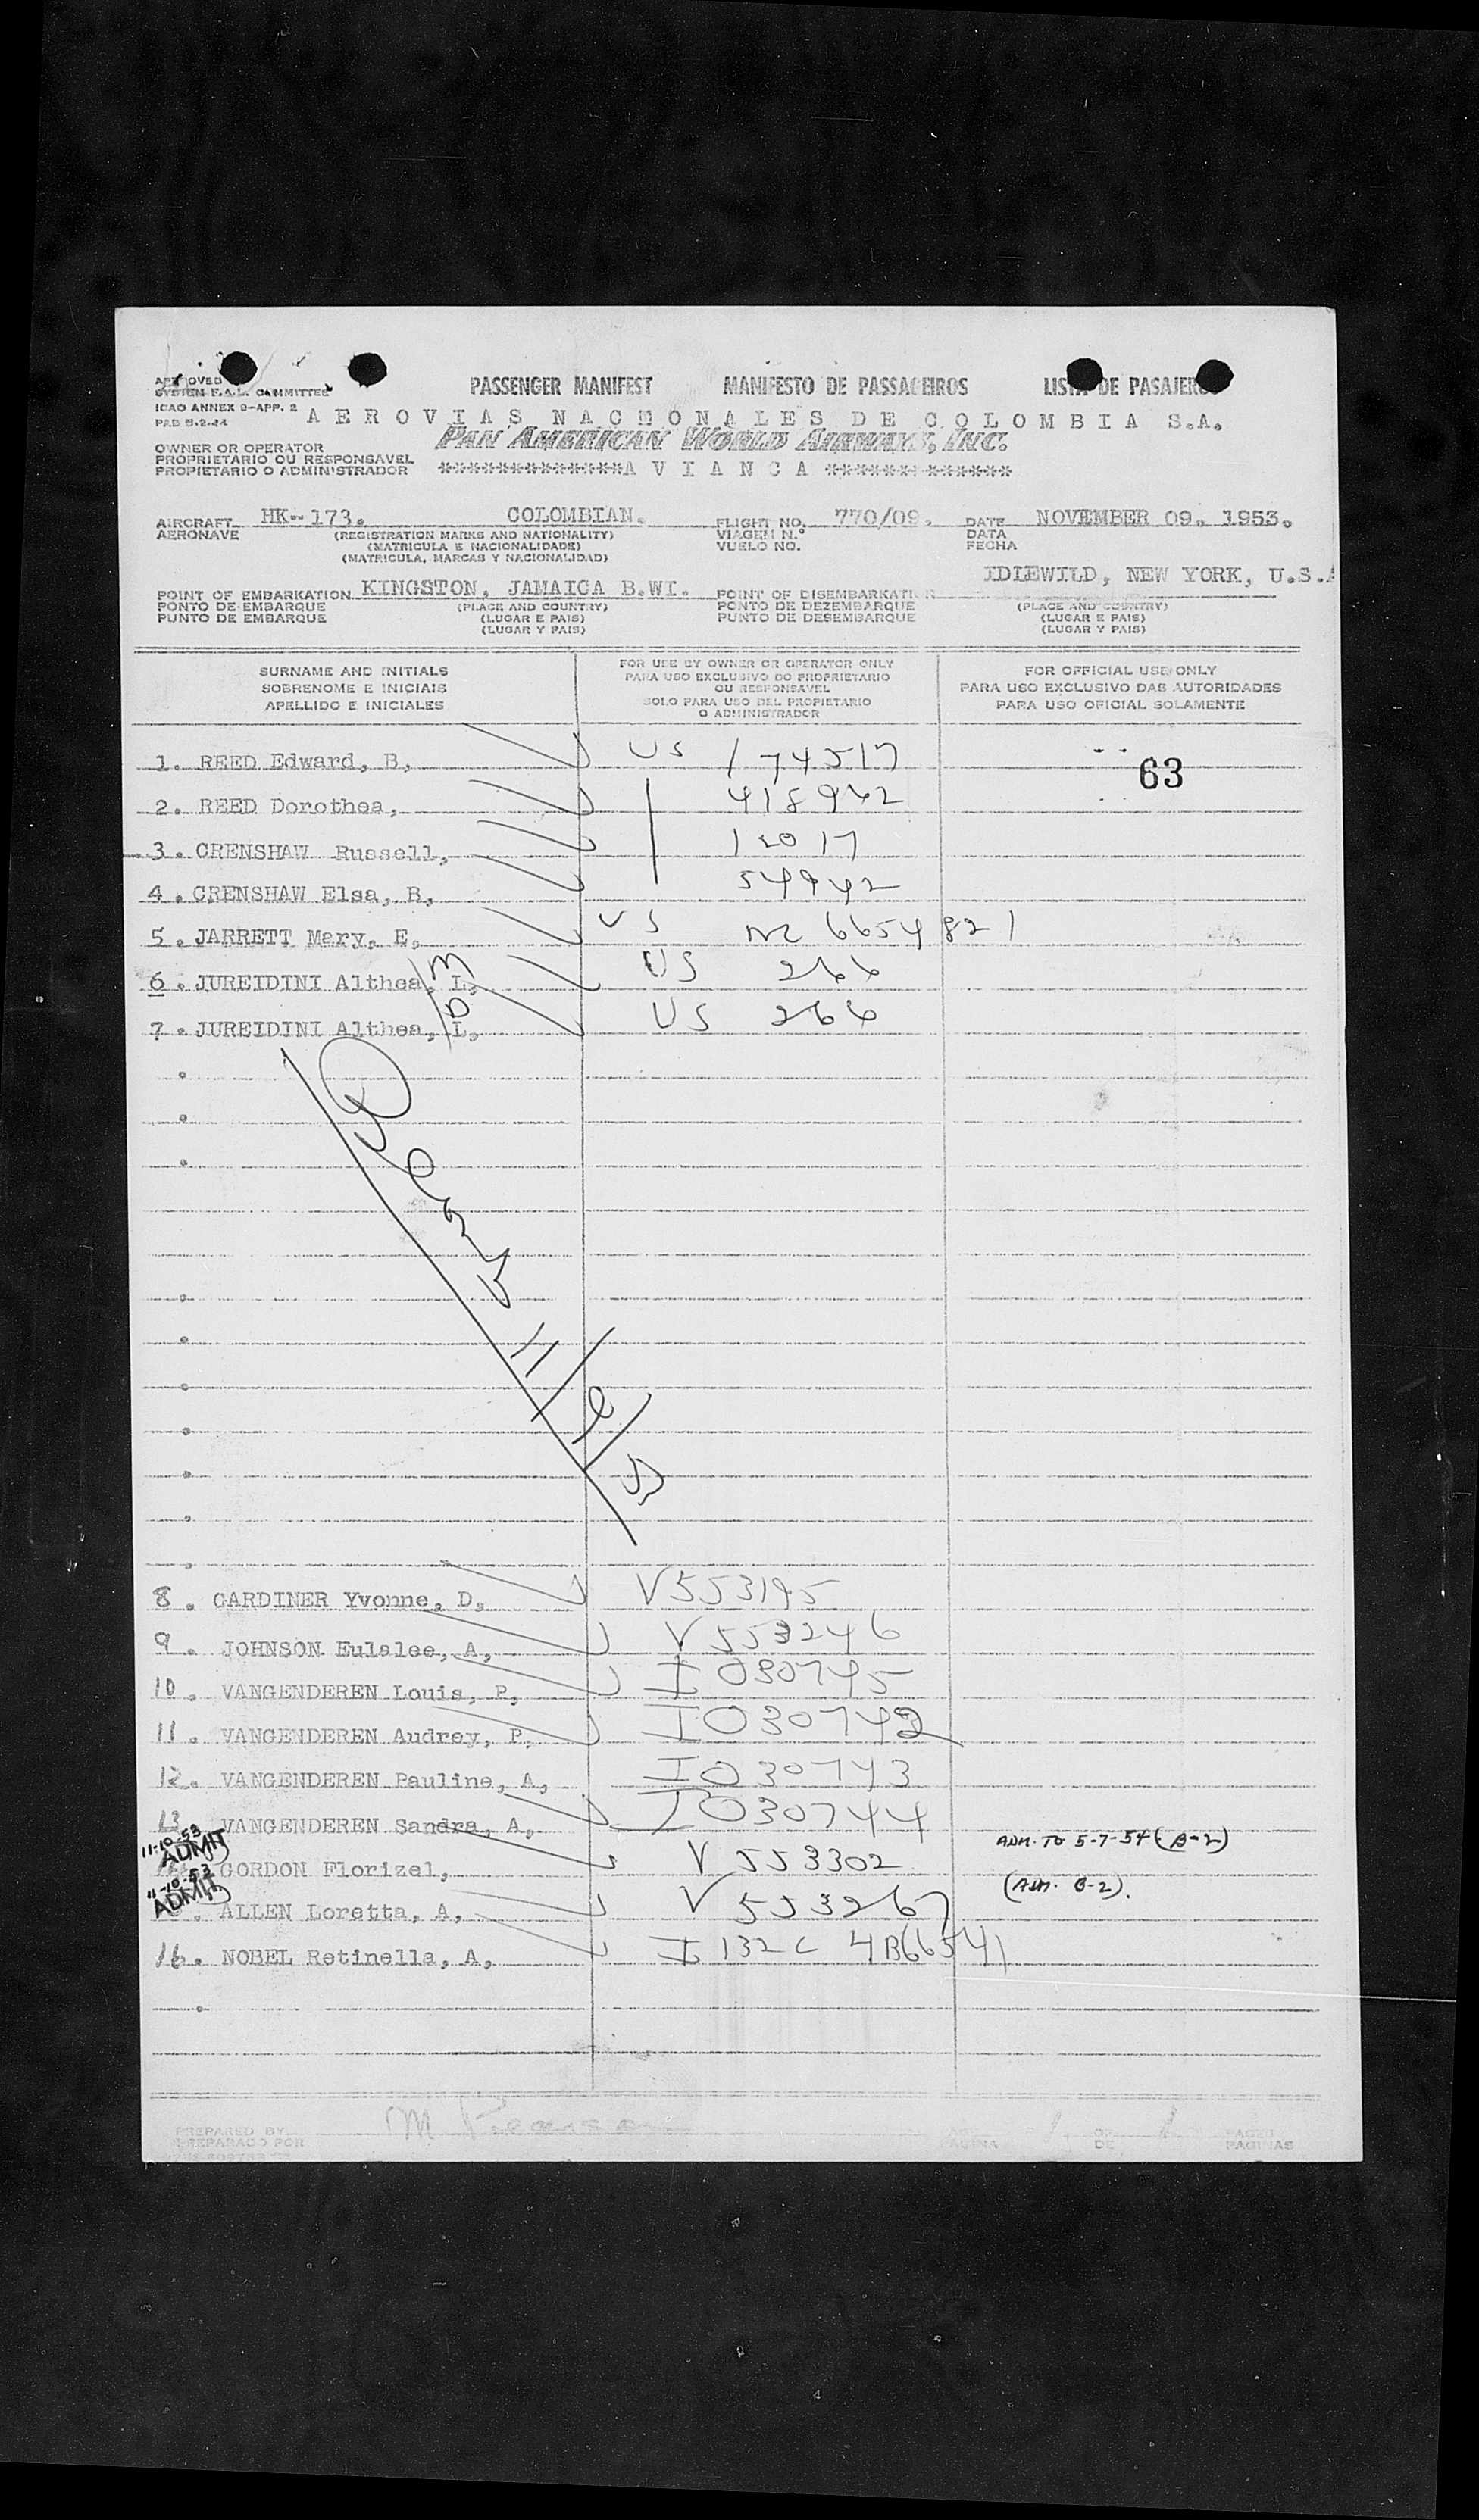 APPROVED
SYSTEM F.A.L. COMMITTEE
ICAO ANNEX 9-APP. 2
PASSENGER MANIFEST MANIFESTO DE PASSAGEIROS LISTA DE PASAJEROS
AEROVIAS NACIONALES DE COLOMBIA S.A.
PAN AMERICAN WORLD AIRWAYS, INC.
OWNER OR OPERATOR
PROPRIETARIO OU RESPONSAVEL
PROPIETARIO O ADMINISTRADOR
*************A V I A N C A *************
AIRCRAFT HK-173. COLOMBIAN. FLIGHT NO. 770/09. DATE NOVEMBER 09. 1953.
AERONAVE (REGISTRATION MARKS AND NATIONALITY) VIAGEM N.º DATA
(MATRICULA E NACIONALIDADE) VUELO NO. FECHA
(MATRICULA, MARCAS Y NACIONALIDAD)
IDLEWILD, NEW YORK, U.S.A
POINT OF EMBARKATION KINGSTON, JAMAICA B.WI. POINT OF DISEMBARKATION
PONTO DE EMBARQUE (PLACE AND COUNTRY) PONTO DE DEZEMBARQUE (PLACE AND COUNTRY)
PUNTO DE EMBARQUE (LUGAR E PAIS) PUNTO DE DESEMBARQUE (LUGAR E PAIS)
(LUGAR Y PAIS) (LUGAR Y PAIS)
SURNAME AND INITIALS
SOBRENOME E INICIAIS
APELLIDO E INICIALES
FOR USE BY OWNER OR OPERATOR ONLY
PARA USO EXCLUSIVO DO PROPRIETARIO
OU RESPONSAVEL
SOLO PARA USO DEL PROPIETARIO
O ADMINISTRADOR
FOR OFFICIAL USE ONLY
PARA USO EXCLUSIVO DAS AUTORIDADES
PARA USO OFICIAL SOLAMENTE
1. REED Edward, B, US 174517
63
2. REED Dorothea, 418942
3. CRENSHAW Russell, 12017
4. CRENSHAW Elsa, B, 54942
5. JARRETT Mary, E, US 6654821
6. JUREIDINI Althea, L, US 266
7. JUREIDINI Althea, L, US 266
11/9/53
8. GARDINER Yvonne, D, V553195
9. JOHNSON Eulalee, A, V553246
10. VANGENDEREN Louis, P, I030745
11. VANGENDEREN Audrey, P, I030742
12. VANGENDEREN Pauline, A, I030743
13. VANGENDEREN Sandra, A, I030744
11-10-53 ADMIT
GORDON Florizel, V553302 ADM. TO 5-7-54 (B-2)
11-10-53 ADMIT
ALLEN Loretta, A, V553267 (ADM. B-2).
16. NOBEL Retinella, A, I132C 4B66541
PREPARED BY
PREPARADO POR
OF
DE
PAGES
PAGINAS